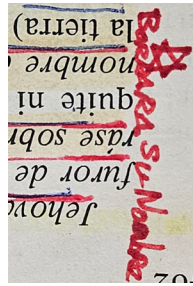 Jehová
furor de
ráse sobr
quite ni
nombre
la tierra)
Borrara Su Nombre